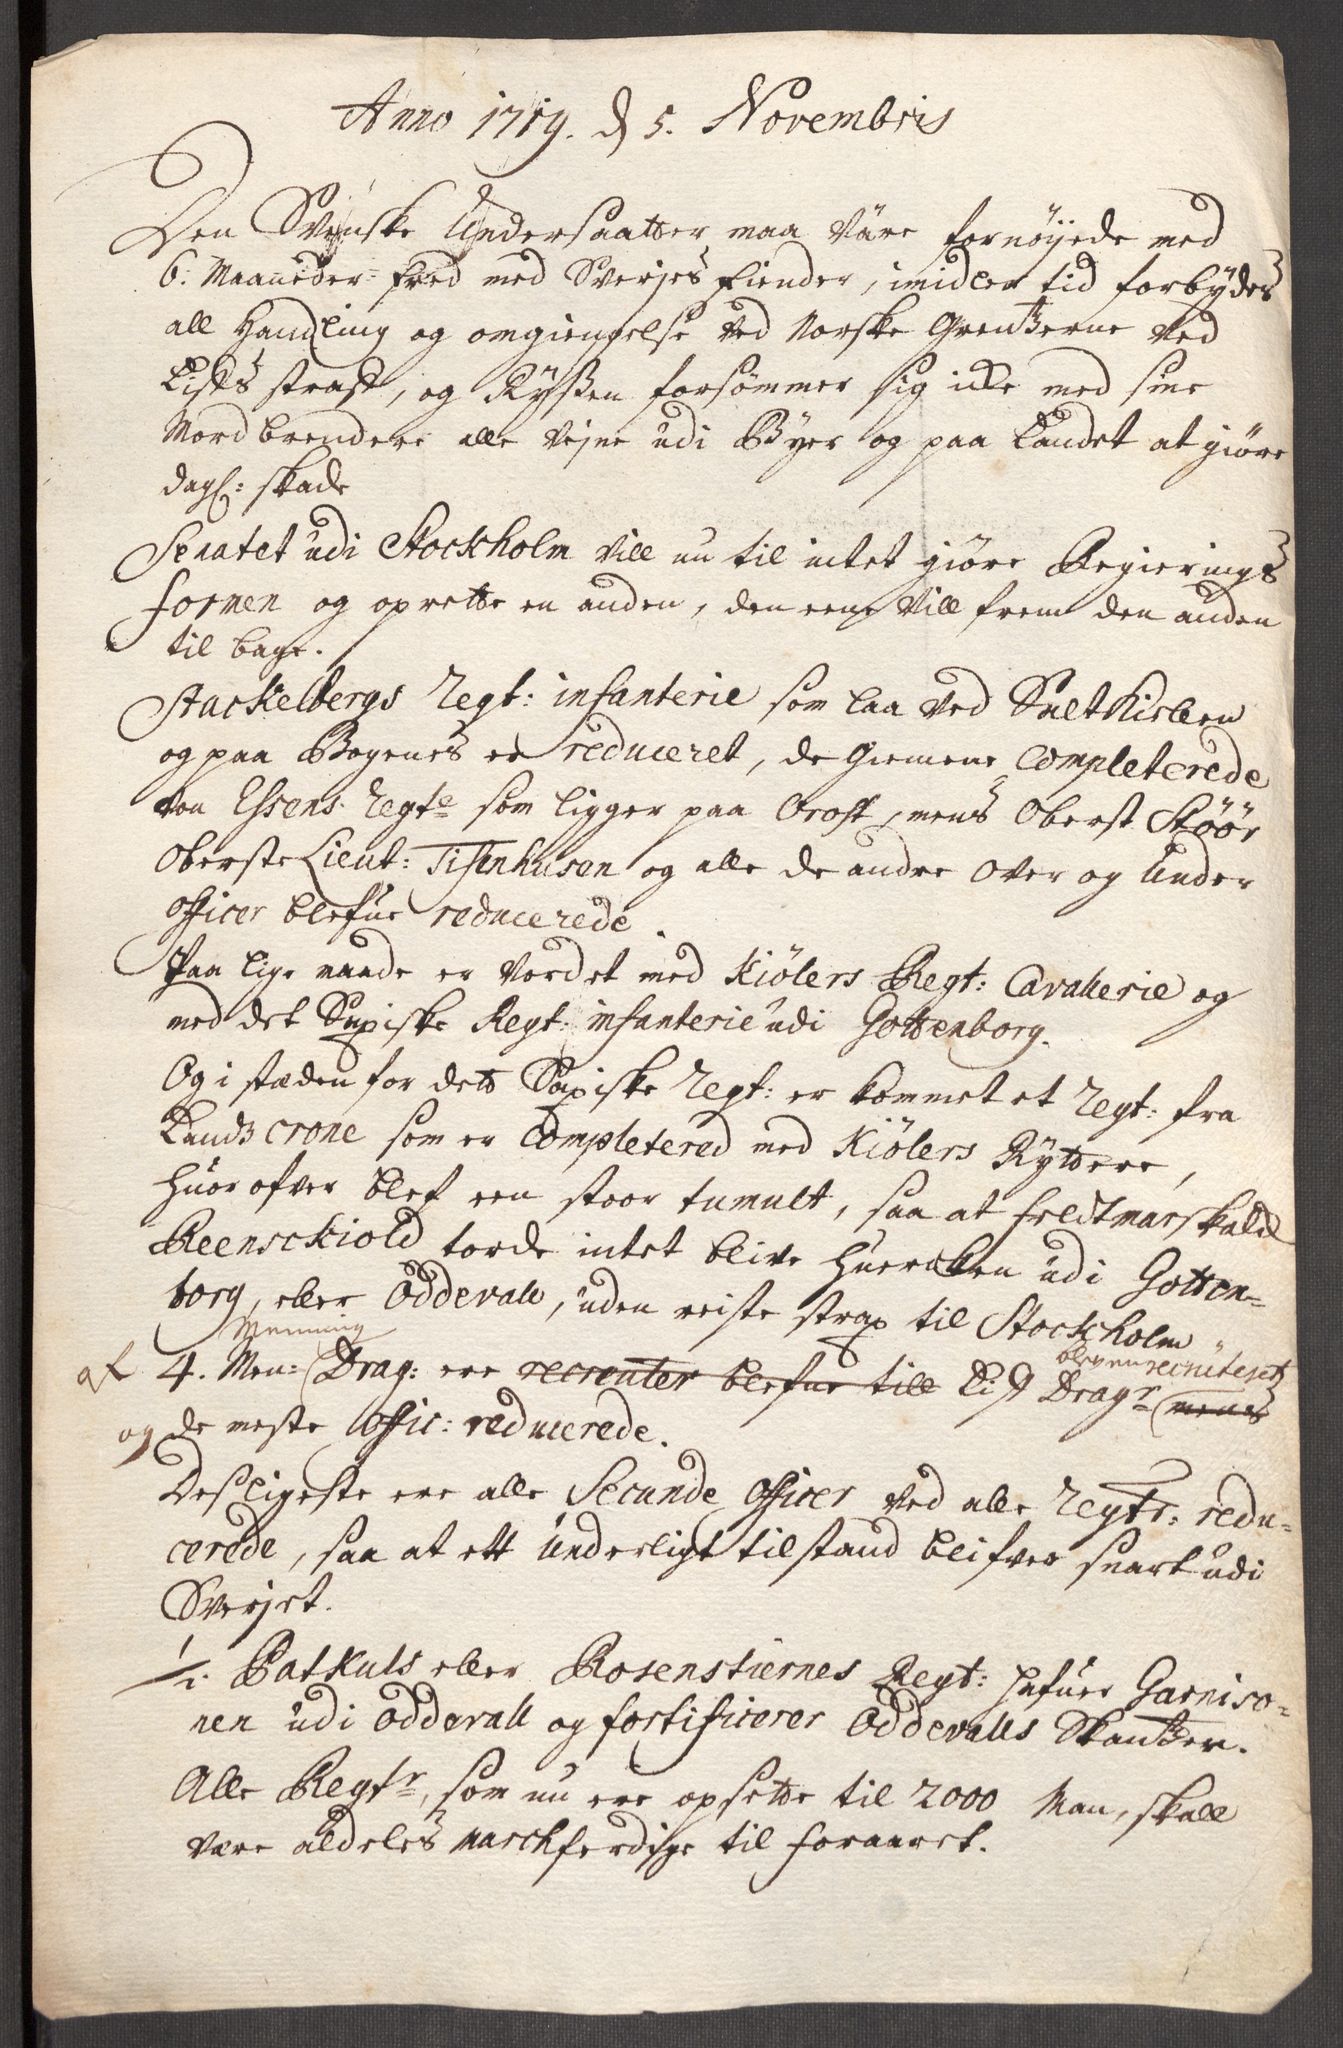 Anno 1719. d 5. Novembris
Den Svenske Undersaatter maa väre fornöyede med
6: Maaneder fred med Sverjes fiender, imidler tid forbydes
all Handling og omgiengelse ved Norske Grentzerne ved
Lifs straf, og Ryssen forsömmer sig icke med sine
Mordbrendere alle vejne udi Byer og paa Landet at giöre
dagl: skade
Senatet udi Stockholm vill nu til intet giöre Regierings
formen og oprette en anden, den eene vill frem den anden
til bage.
Stackelbergs Regt: infanterie som laa ved Saltkielen
og paa Bogenes er reduceret, de Giemene Completerede
von Essens Regte som ligger paa Orost, mens Oberst Stöör
Oberste Lieut: Tisenhusen og alle de andre Over og Under
officer blefue reducerede.
Paa lige maade er vordet med Kiölers Regt: Cavallerie og
med det Saxiske Regt: infanterie udi Gottenborg.
Og i stæden for dett Saxiske Regt: er kommet et Regt: fra
Landzcrone som er Completered med Kiölers Ryttere,
huor ofver blef een stoor tumult, saa at feldtmarskald
Reensckiold torde intet blive huercken udi Gotten=
borg, eller Oddevall, uden reiste strax til Stockholm
Menning
bleven recruteret
af 4. Men: Drag: ere recruter blefue till Lif Dragr mens
og de meste offic: reducerede.
Desligeste ere alle Secunde Officer ved alle Regtr: redu=
cerede, saa at ett underligt tilstand blifver snart udi
Sverjet.
1/. Patkuls eller Rosenstiernes Regt: hafuer Garniso=
nen udi Oddevall og fortificerer Oddevalls Skantzer.
Alle Regtr, som nu ere opsette til 2000 Man, skall
være aldeles marchferdige til foraaret.